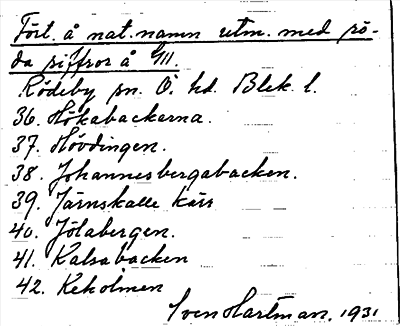 Förl. å nat.namn utm. med rö-
da siffror å GM.
Rödeby sn. Ö. hd. Blek. l.
36. Hökabackarna.
37. Hövdingen.
38. Johannesbergabacken.
39. Järnskalle kärr
40. Jölabergen.
41. Kalsabacken
42. Keholmen
Sven Hartman. 1931